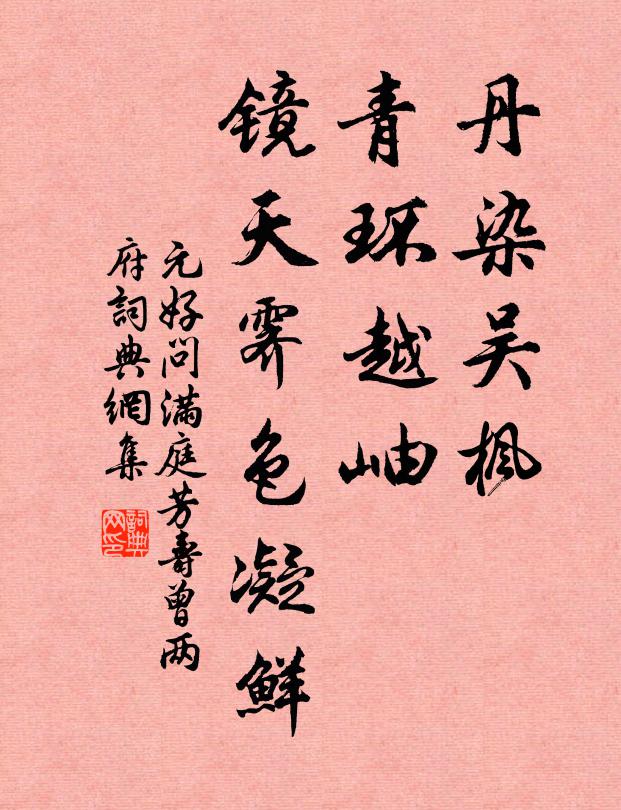 丹染吴枫
青环越岫
镜天霁色凝鲜
元好问满庭芳寿曾两
府詞典網集
詞典网印